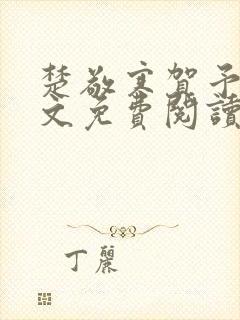 楚敬寒賀予
文免費閱讀
丁麗